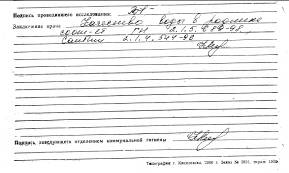 Подпись проводившего исследования:
Заключение врача Качество воды в роднике
соот-ет ГН 2.1.5.689-98,
СанПиН 2.1.4.544-96
Подпись заведующего отделением коммунальной гигиены
Типография г.